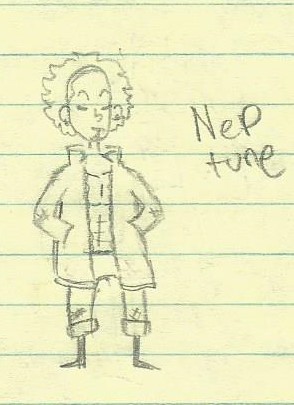 Nep
tune